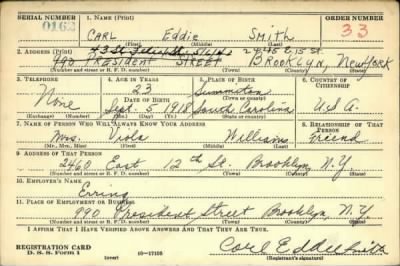 SERIAL NUMBER 1. NAME (Print) ORDER NUMBER
0162 CARL Eddie Smith 33
(First) (Middle) (Last)
2. ADDRESS (Print) 2445 E. 15 St.
990 PRESIDENT STREET BROOKLYN, NEW YORK
(Number and street or R. F. D. number) (Town) (County) (State)
3. TELEPHONE 4. AGE IN YEARS 5. PLACE OF BIRTH 6. COUNTRY OF CITIZENSHIP
23 Summiton
None DATE OF BIRTH (Town or county)
Sept. 5, 1918 South Carolina U.S.A.
(Exchange) (Number) (Mo.) (Day) (Yr.) (State or country)
7. NAME OF PERSON WHO WILL ALWAYS KNOW YOUR ADDRESS 8. RELATIONSHIP OF THAT PERSON
Mrs. Viola Williams Friend
(Mr., Mrs., Miss) (First) (Middle) (Last)
9. ADDRESS OF THAT PERSON
2460 East 12th St. Brooklyn N.Y.
(Number and street or R. F. D. number) (Town) (County) (State)
10. EMPLOYER'S NAME
Erring
11. PLACE OF EMPLOYMENT OR BUSINESS
990 President Street Brooklyn, N.Y.
(Number and street or R. F. D. number) (Town) (County) (State)
I AFFIRM THAT I HAVE VERIFIED ABOVE ANSWERS AND THAT THEY ARE TRUE.
REGISTRATION CARD
D. S. S. Form 1 16-17105 Carl Eddie Smith
(over) (Registrant's signature)